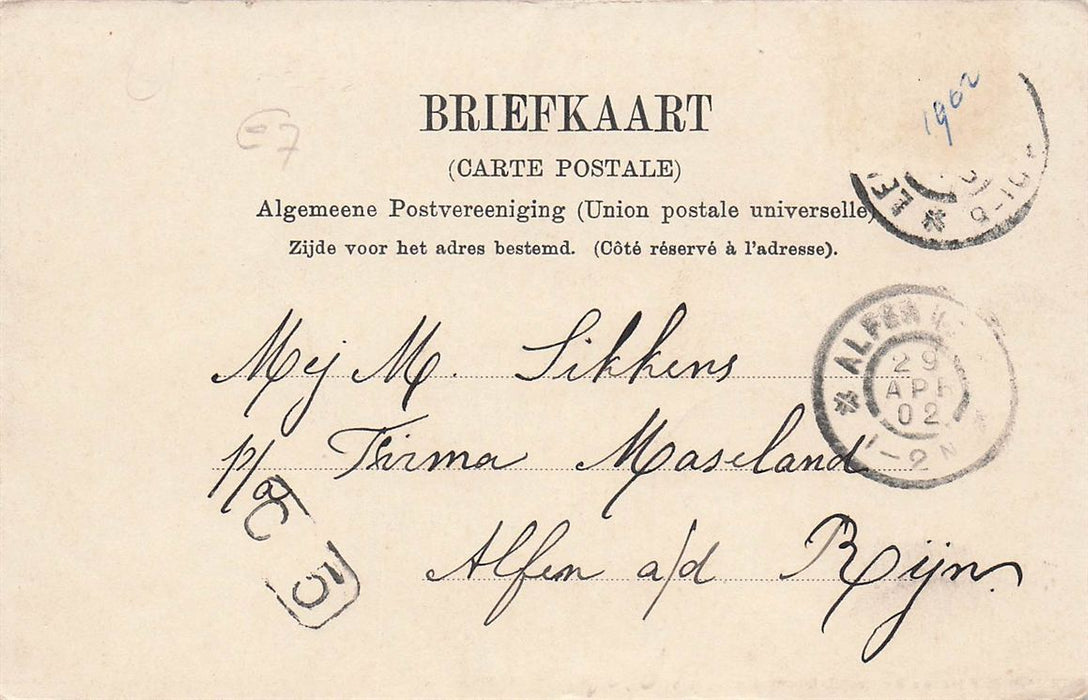 BRIEFKAART
(CARTE POSTALE)
Algemeene Postvereeniging (Union postale universelle)
Zijde voor het adres bestemd. (Côté réservé à l'adresse).
1902
Mej M. Sikkens
p/a Firma Maseland
Alfen a/d Rijn.
ALFEN
29
APR
02
1-2N
C 5